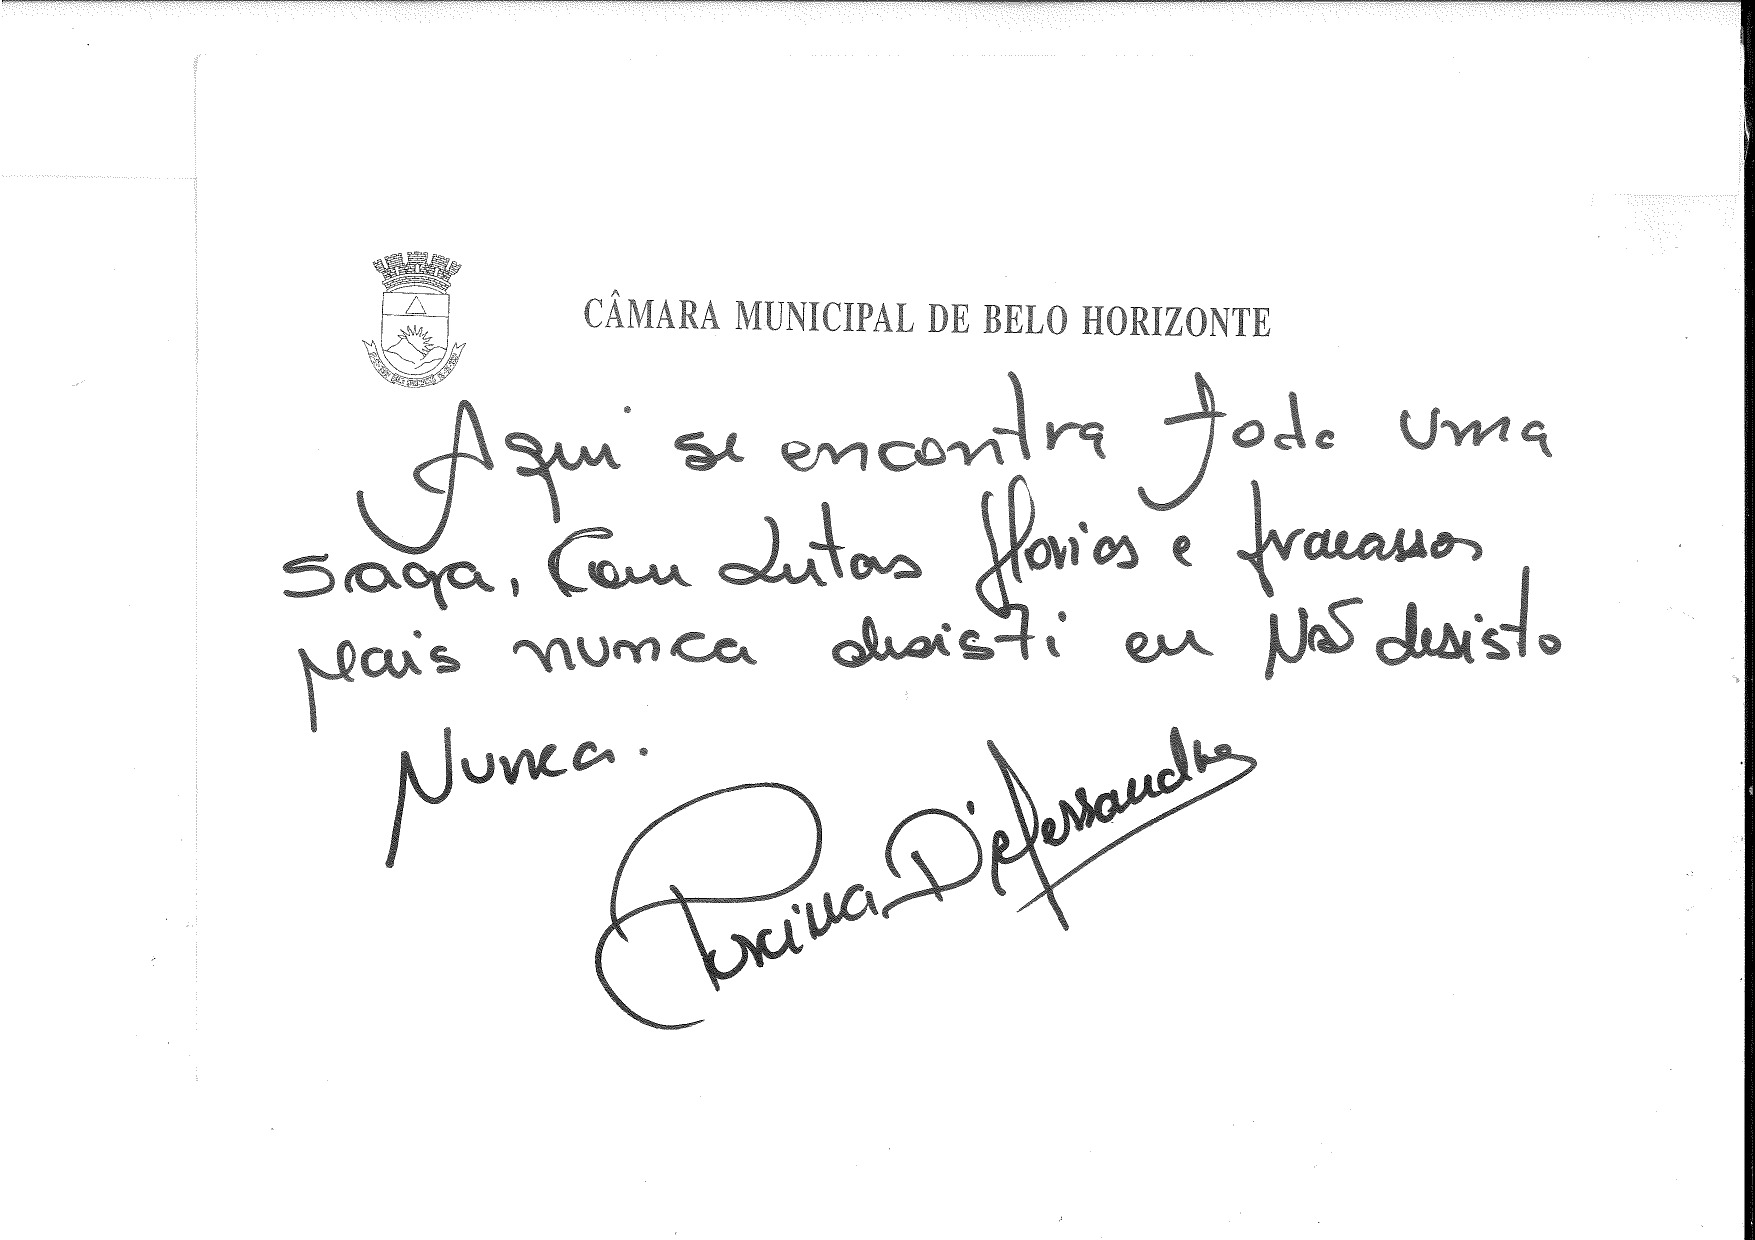 CÂMARA MUNICIPAL DE BELO HORIZONTE
Aqui se encontra toda uma
saga, com Lutas Glorias e fracassos
Mais nunca desisti eu Não desisto
Nunca.
D'Alessandro